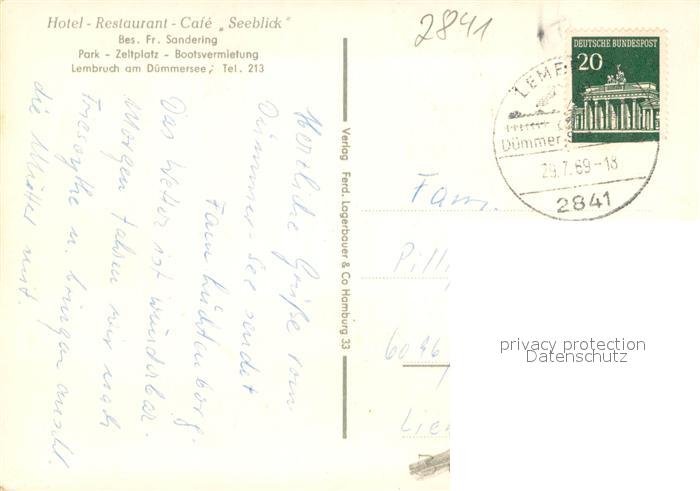 Hotel - Restaurant - Café „Seeblick"
Bes. Fr. Sandering
Park - Zeltplatz - Bootsvermietung
Lembruch am Dümmersee; Tel. 213
2841
DEUTSCHE BUNDESPOST
20
LEMB
Dümmer
29.7.69-18
2841
Herzliche Grüße vom
Dümmer-See sendet
Fam.
Das Wetter ist wunderbar.
Morgen fahren wir nach
Friesoythe u. bringen
die Mutter mit.
Verlag Ferd. Lagerbauer & Co Hamburg 33
Fam.
Pill
6046
privacy protection
Datenschutz